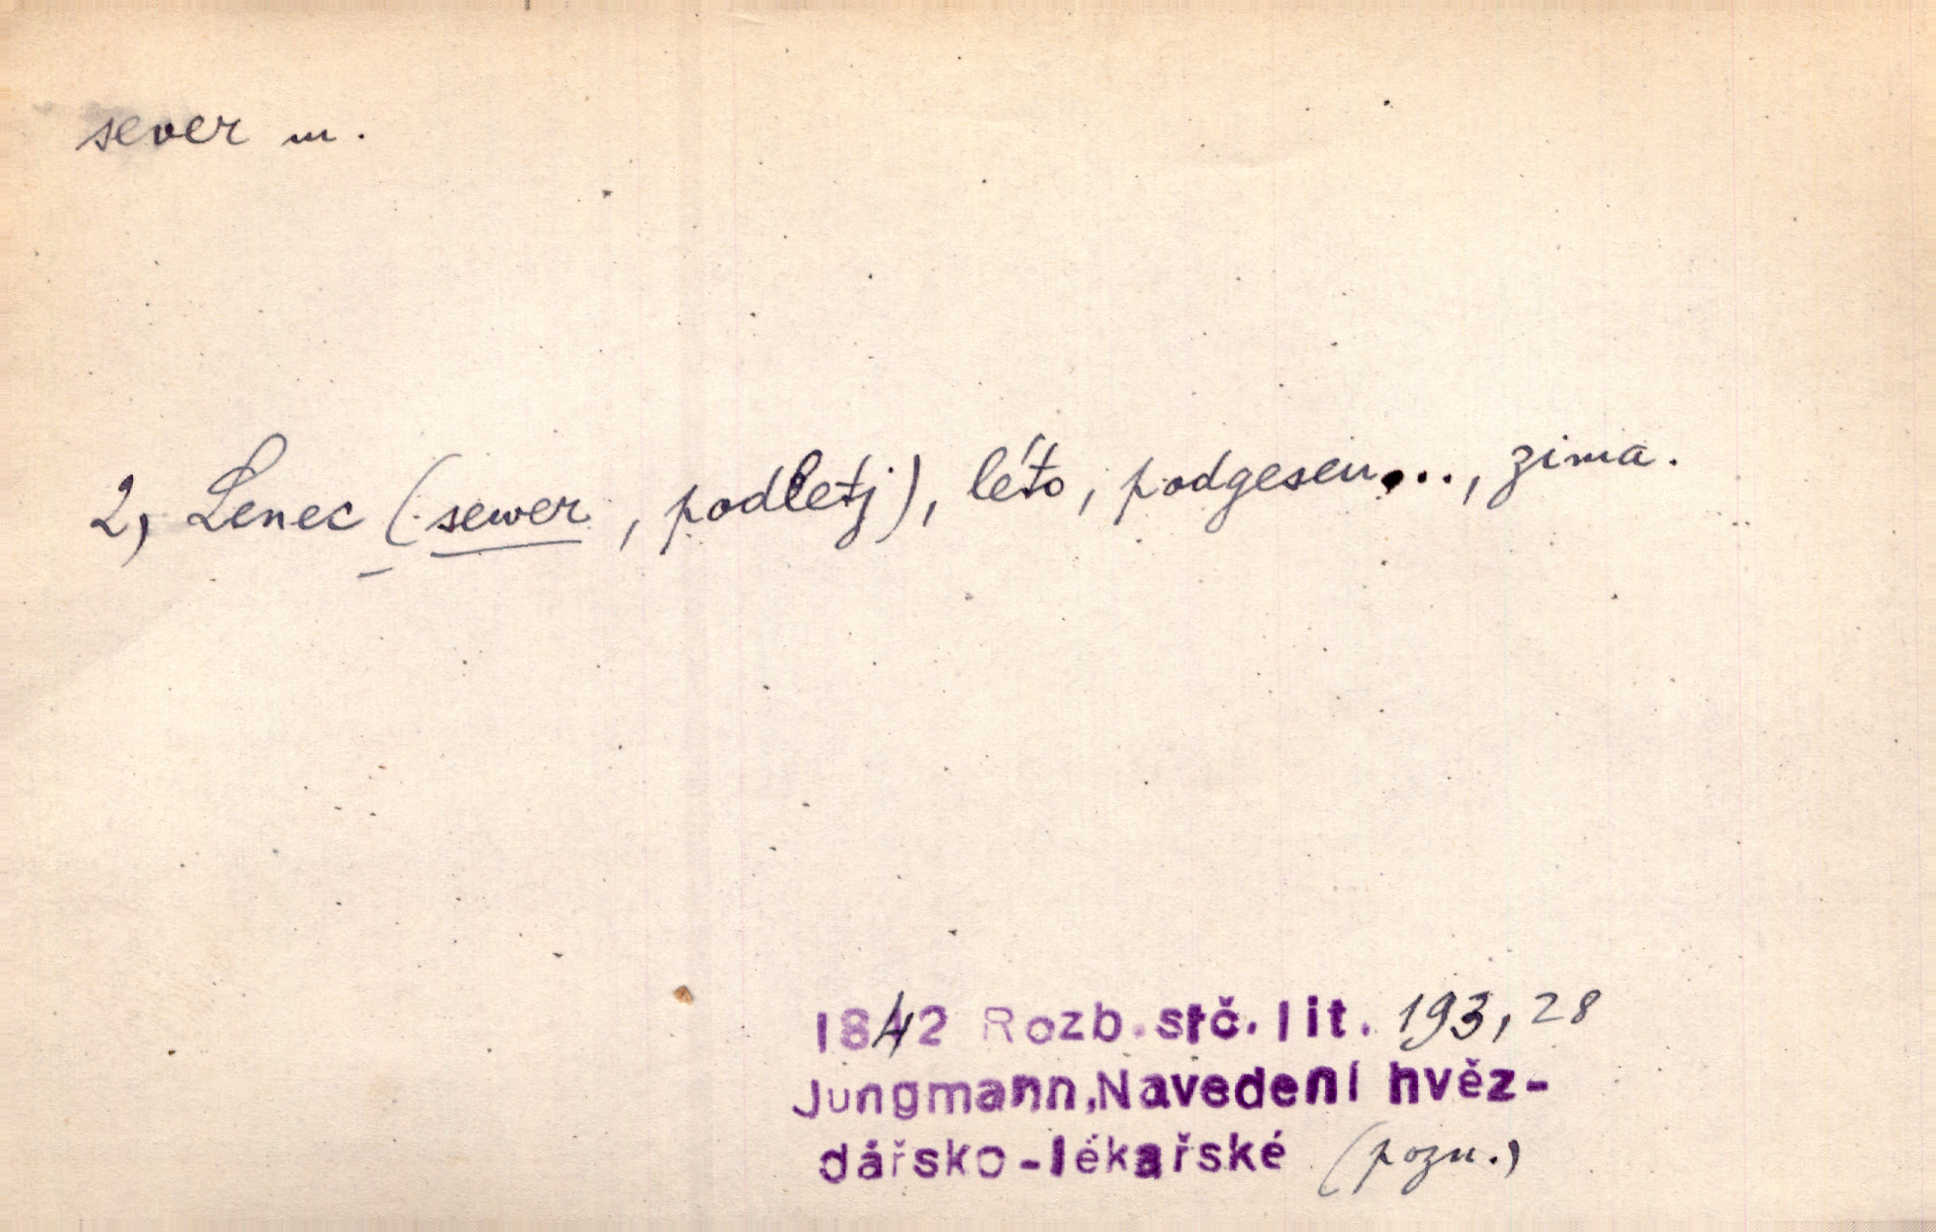 sever m.
2, Lenec (sewer, podletj), léto, podgesen..., zima.
1842 Rozb. stč. lit. 193, 28
Jungmann, Navedení hvěz-
dářsko-lékařské (pozn.)